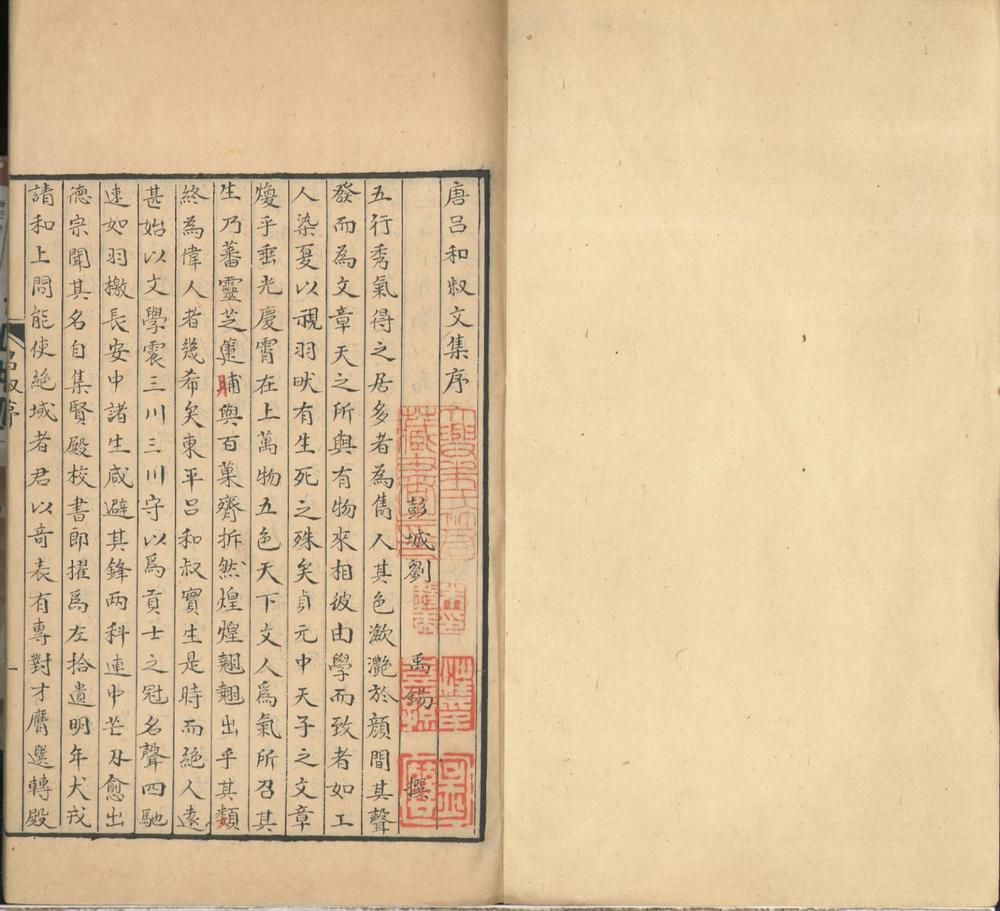 唐呂和叔文集序
彭城劉 禹錫 撰
五行秀氣得之居多者為雋人其色瀲灧於顔間其聲
發而為文章天之所與有物來相彼由學而致者如工
人染夏以視羽畎有生死之殊矣貞元中天子之文章
煥乎垂光慶霄在上萬物五色天下文人爲氣所召其
生乃蕃靈芝萐莆與百菓齊拆然煌煌翹翹出乎其類
終為偉人者幾希矣東平呂和叔實生是時而絶人遠
甚始以文學震三川三川守以爲貢士之冠名聲四馳
速如羽檄長安中諸生咸避其鋒兩科連中芒刃愈出
德宗聞其名自集賢殿校書郎擢爲左拾遺明年犬戎
請和上問能使絶域者君以奇表有專對才膺選轉殿